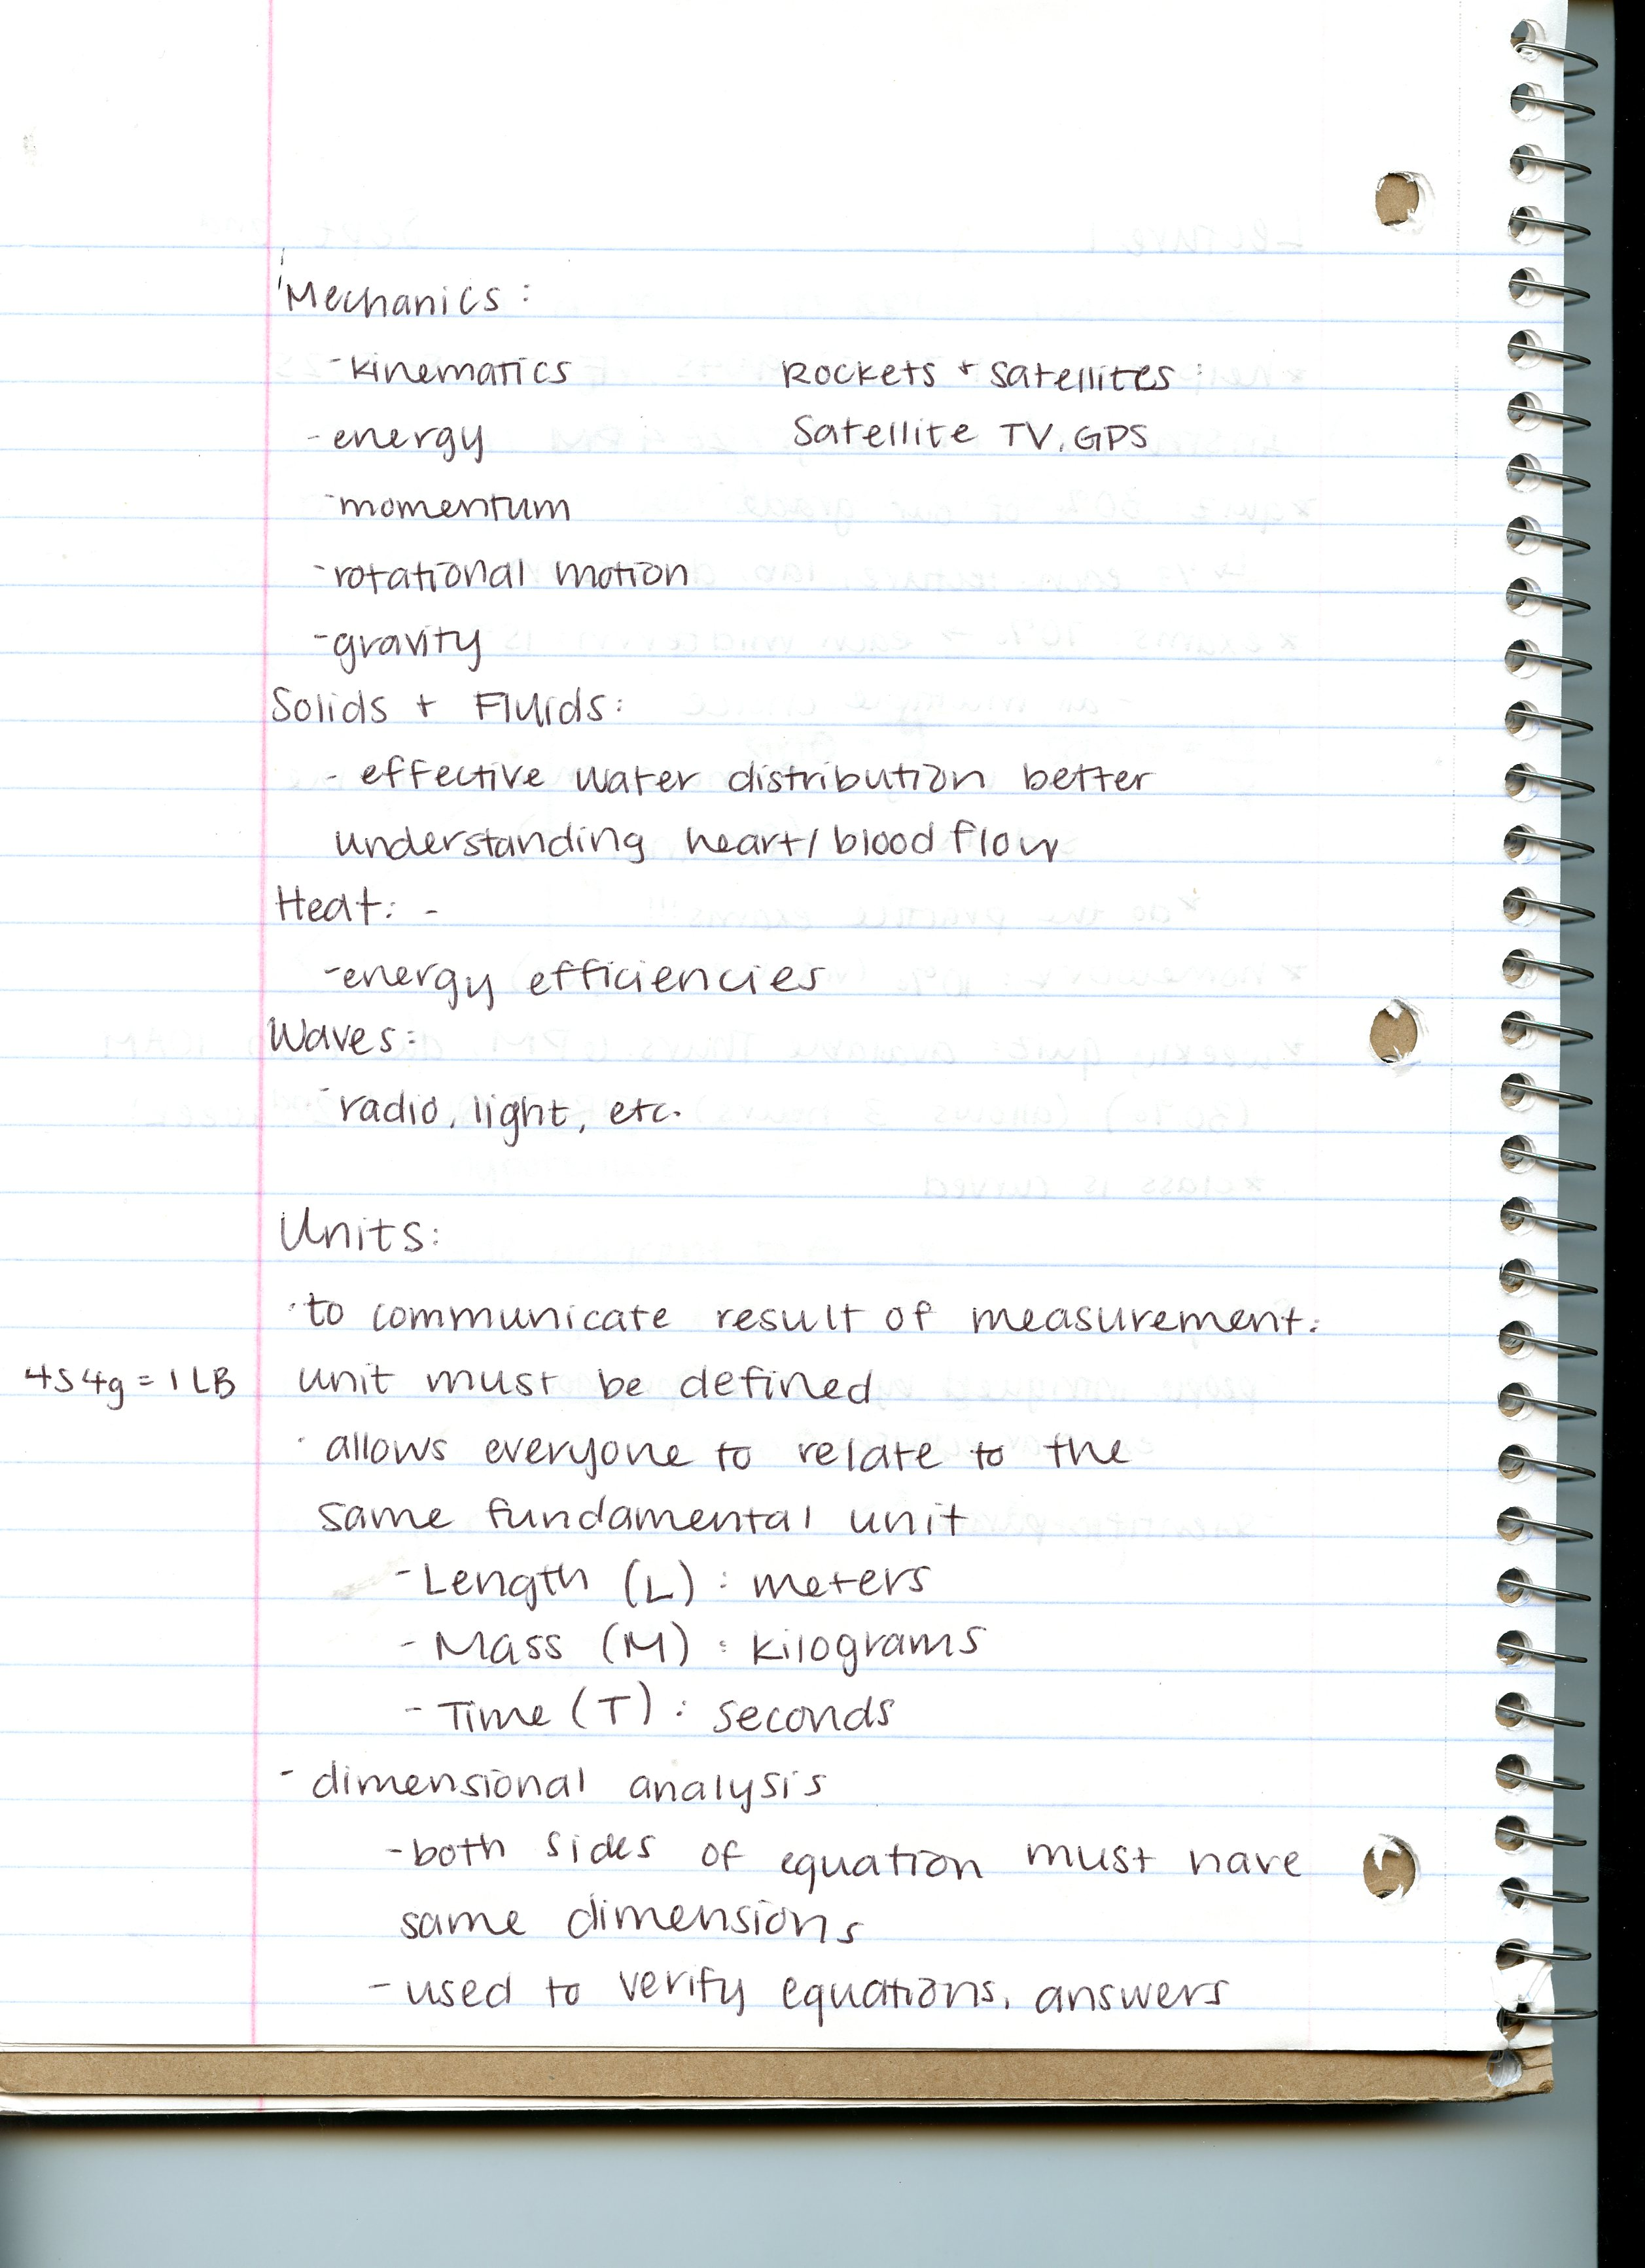 Mechanics:
-kinematics Rockets + satellites:
-energy Satellite TV, GPS
-momentum
-rotational motion
-gravity
Solids + Fluids:
- effective water distribution better
understanding heart/blood flow
Heat: -
-energy efficiencies
Waves:
-radio, light, etc.
Units:
·to communicate result of measurement:
454g = 1 LB unit must be defined
· allows everyone to relate to the
same fundamental unit
-Length (L): meters
-Mass (M): kilograms
-Time (T): seconds
- dimensional analysis
-both sides of equation must have
same dimensions
-used to verify equations, answers